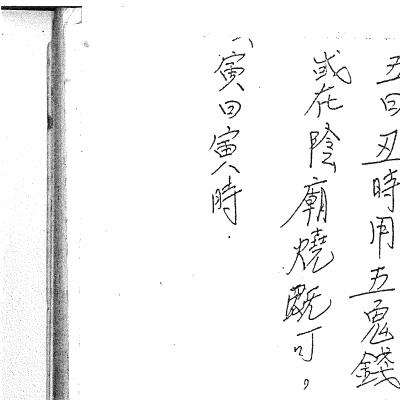 五日丑時用五鬼錢
或在陰廟燒既可，
寅日寅時.